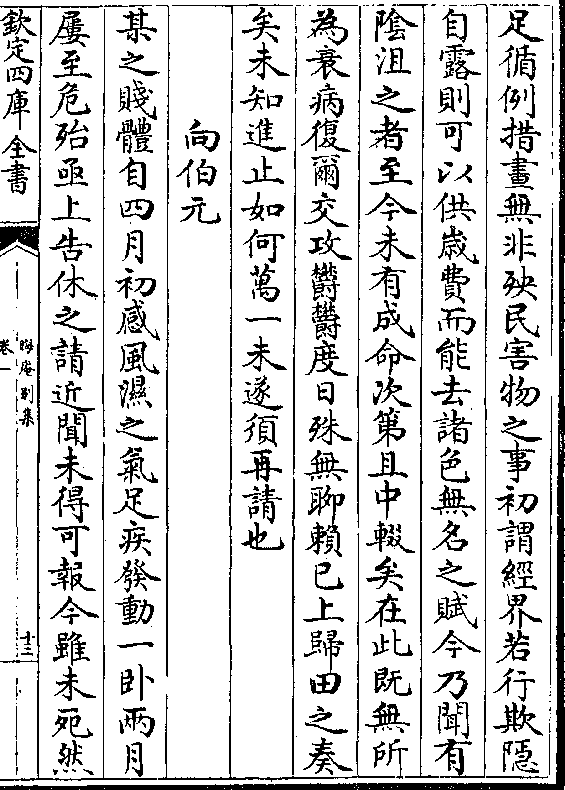 足循例措畫無非殃民害物之事初謂經界若行欺隠
自露則可以供歳費而能去諸色無名之賦今乃聞有
隂沮之者至今未有成命次第且中輟矣在此既無所
為衰病復爾交攻欝欝度日殊無聊賴已上歸田之奏
矣未知進止如何萬一未遂須再請也
向伯元
某之賤體自四月初感風濕之氣足疾發動一卧兩月
屢至危殆亟上告休之請近聞未得可報今雖未死然
欽定四庫全書
晦庵别集
卷一
十三